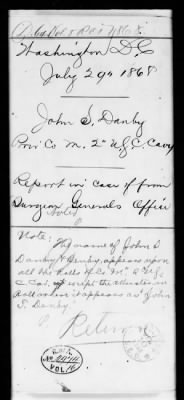 Washington D.C.
July 29th 1868
John S. Danby
Priv. Co. M. 2nd U.S.C. Cavy
Report in case of from
Surgeon General's Office
Noted
Note:
The name of John S
Danby & Denby, appears upon
all the Rolls of Co "M" 2 U.S.
C. Cav. except the
Roll where it appears as John
S. Danby.
Return
VOL.